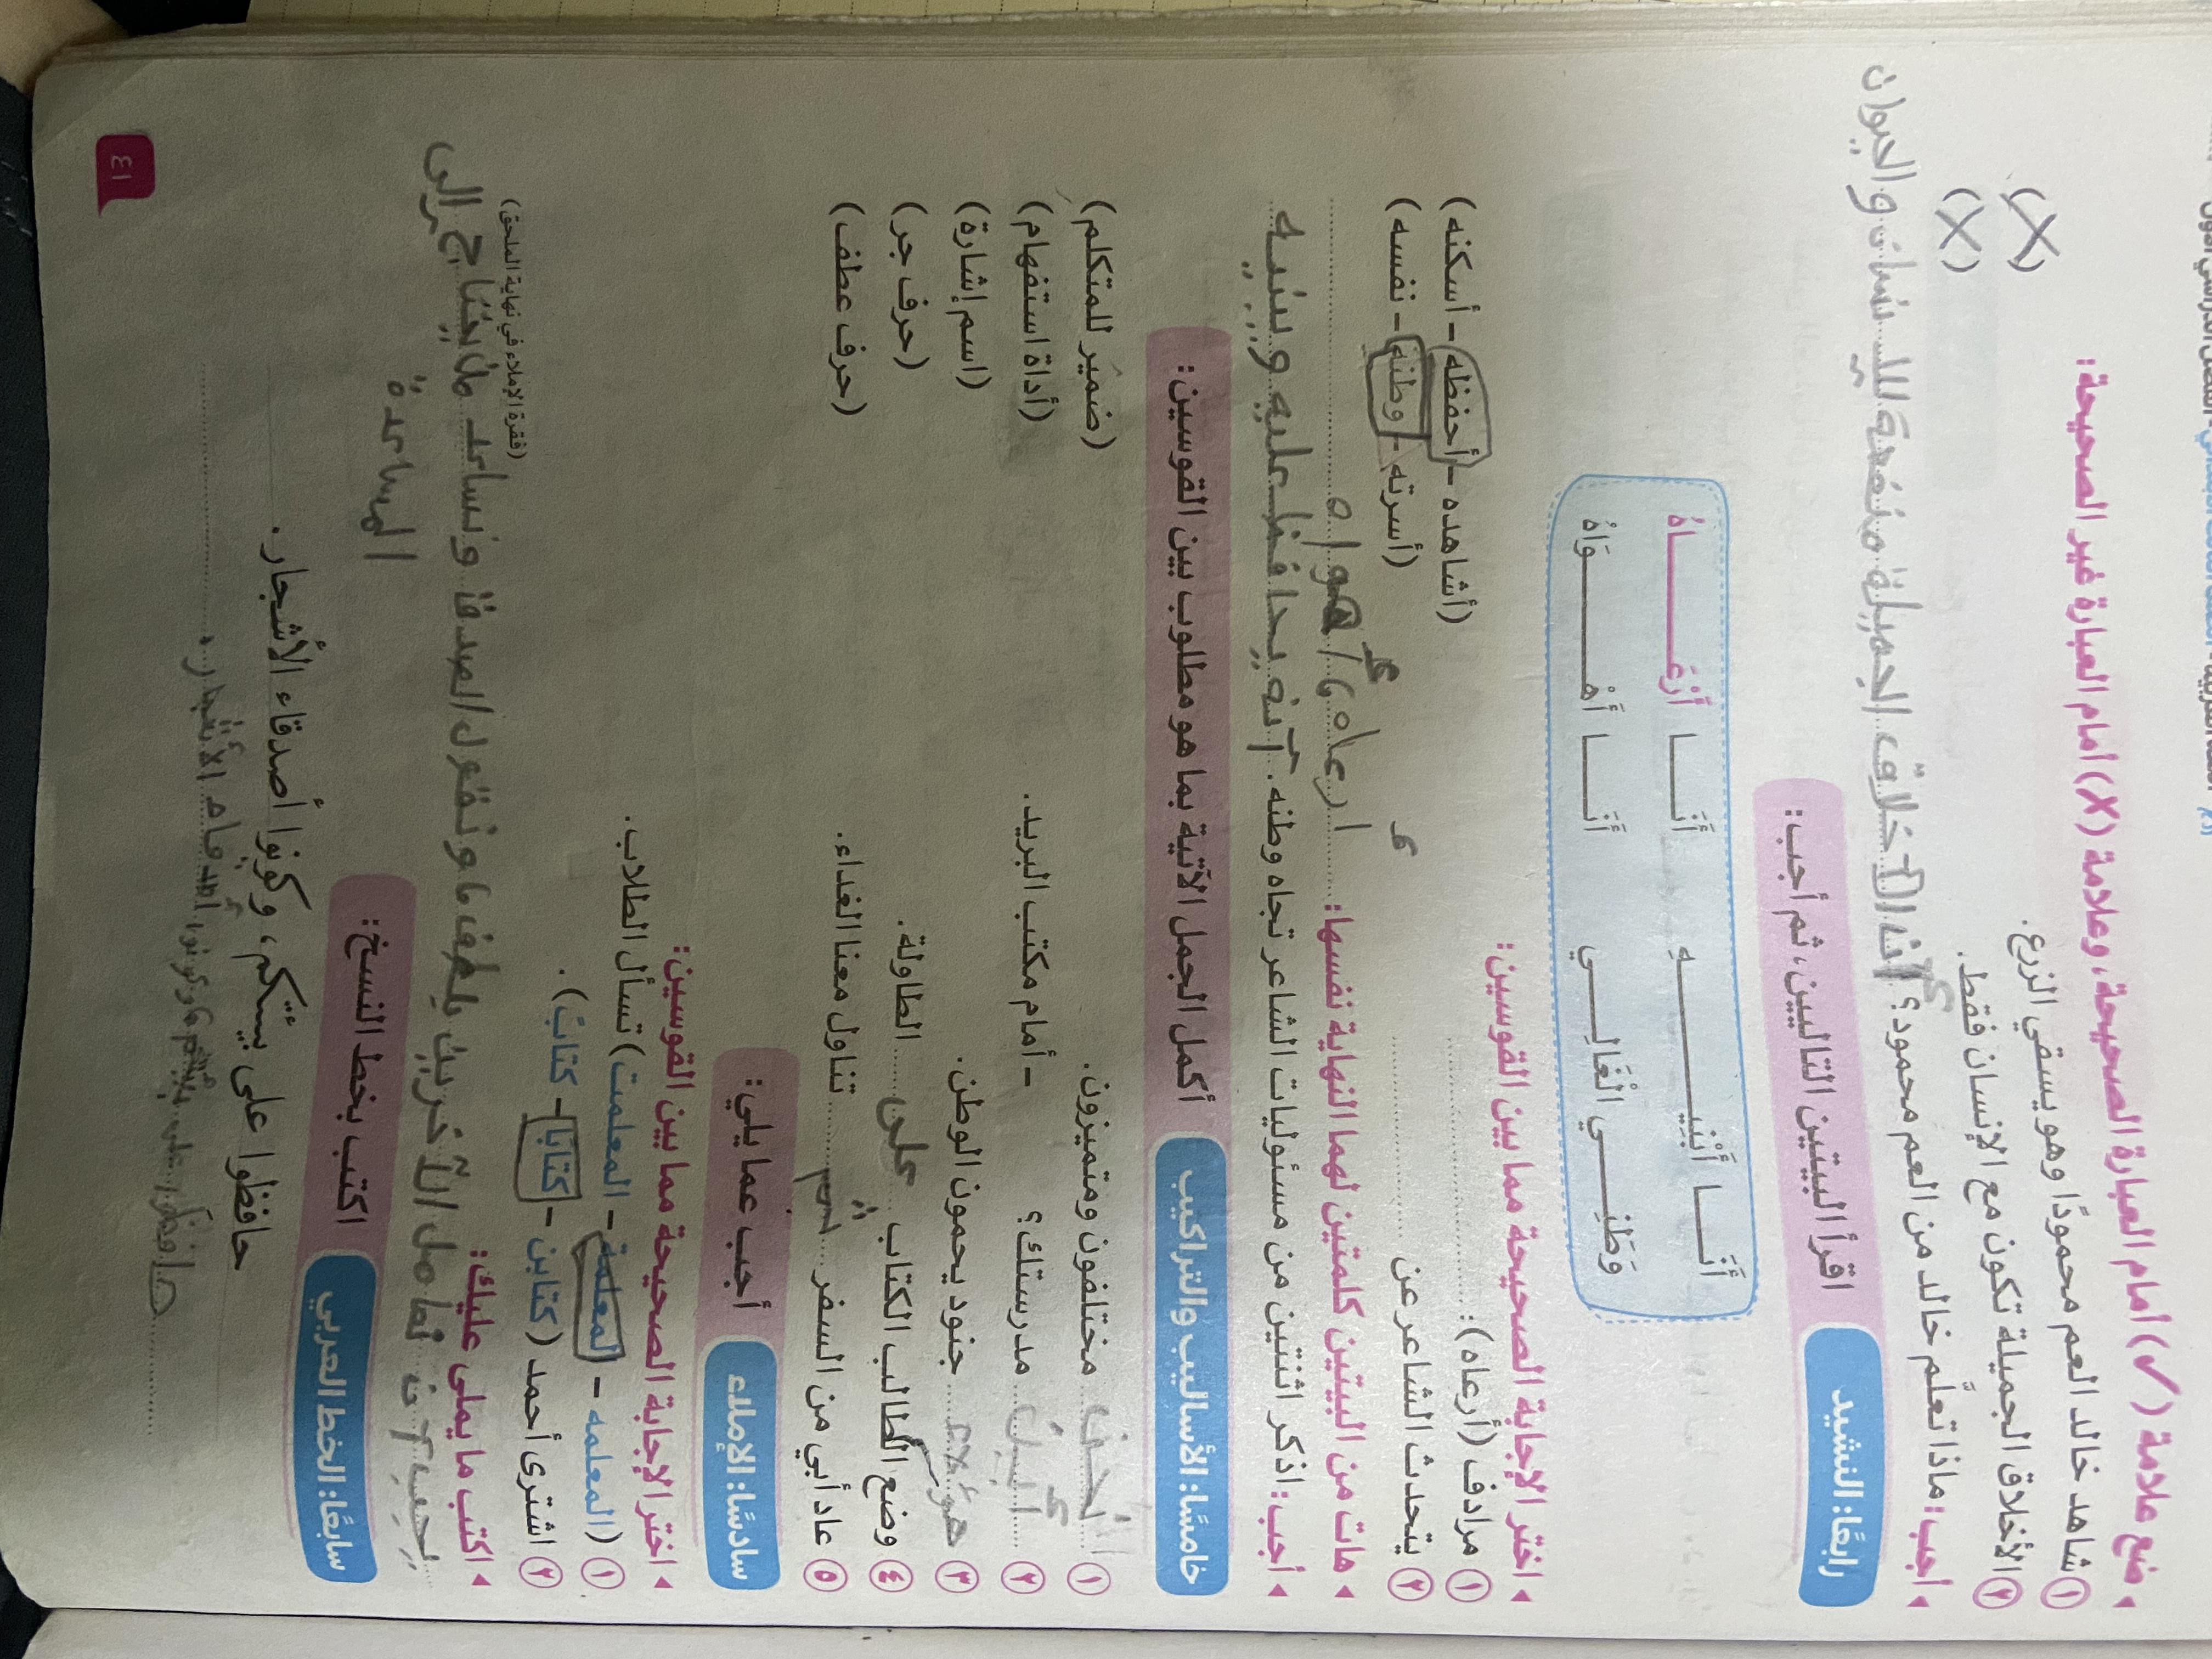 ◂ ضع علامة (✓) أمام العبارة الصحيحة، وعلامة (✗) أمام العبارة غير الصحيحة:
١ شاهد خالد العم محمودًا وهو يسقي الزرع. (✗)
٢ الأخلاق الجميلة تكون مع الإنسان فقط. (✗)
◂ أجب: ماذا تعلَّم خالد من العم محمود؟ الجميلة منفعة والحيوان
رابعًا: النشيد اقرأ البيتين التاليين، ثم أجب:
أَنَـــا أَبْنِيــــــــهِ أَنَـــا أَرْعَــــــــاهُ
وَطَنِـــــي الْغَالِـــــي أَنَـــا أَهْــــــــوَاهُ
◂ اختر الإجابة الصحيحة مما بين القوسين:
١ مرادف (أرعاه): (أشاهده - أحفظه - أسكنه)
٢ يتحدث الشاعر عن (أسرته - وطنه - نفسه)
◂ هات من البيتين كلمتين لهما النهاية نفسها: ارعاه، / اهواه
◂ أجب: اذكر اثنتين من مسئوليات الشاعر تجاه وطنه. يحافظ عليه ويبنيه
خامسًا: الأساليب والتراكيب أكمل الجمل الآتية بما هو مطلوب بين القوسين:
١ نحن مختلفون ومتميزون. (ضمير للمتكلم)
٢ أين مدرستك؟ - أمام مكتب البريد. (أداة استفهام)
٣ هؤلاء جنود يحمون الوطن. (اسم إشارة)
٤ وضع الطالب الكتاب على الطاولة. (حرف جر)
٥ عاد أبي من السفر ثم تناول معنا الغداء. (حرف عطف)
سادسًا: الإملاء أجب عما يلي:
◂ اختر الإجابة الصحيحة مما بين القوسين:
١ (المعلمه - المعلمة - المعلمت) تسأل الطلاب.
٢ اشترى أحمد (كتابن - كتابًا - كتابً).
◂ اكتب ما يملى عليك: (فقرة الإملاء في نهاية الملحق)
الآخرين بلطف، ونقول الصدق ونساعد من يحتاج إلى
المساعدة
سابعًا: الخط العربي اكتب بخط النسخ:
حافظوا على بيئتكم، وكونوا أصدقاء الأشجار.
حافظوا على بيئتكم وكونوا أصدقاء الأشجار.
٤١